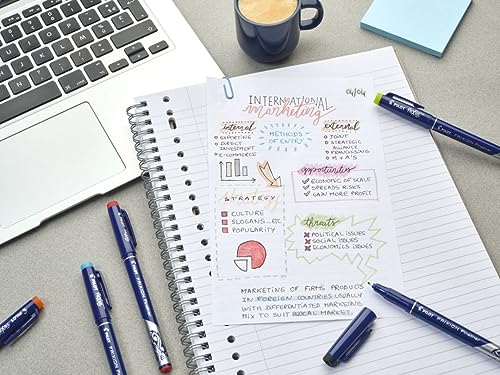 04/04
INTERNATIONAL
marketing
internal
EXPORTING
DIRECT
INVESTMENT
E-COMMERCE
METHODS
OF ENTRY
external
JOINT
STRATEGIC
ALLIANCE
FRANCHISING
M+A'S
opportunities
ECONOMIC OF SCALE
SPREADS RISKS
GAIN MORE PROFIT
STRATEGY
CULTURE
SLOGANS...ETC
POPULARITY
threats
POLITICAL ISSUES
SOCIAL ISSUES
ECONOMICS ISSUES
MARKETING OF FIRM'S PRODUCTS
IN FOREIGN COUNTRIES USUALLY
WITH DIFFERENTIATED MARKETING
MIX TO SUIT LOCAL MARKET.
PILOT FRIXION Fineliner
PILOT FRIXION
PILOT FRIXION Fineliner